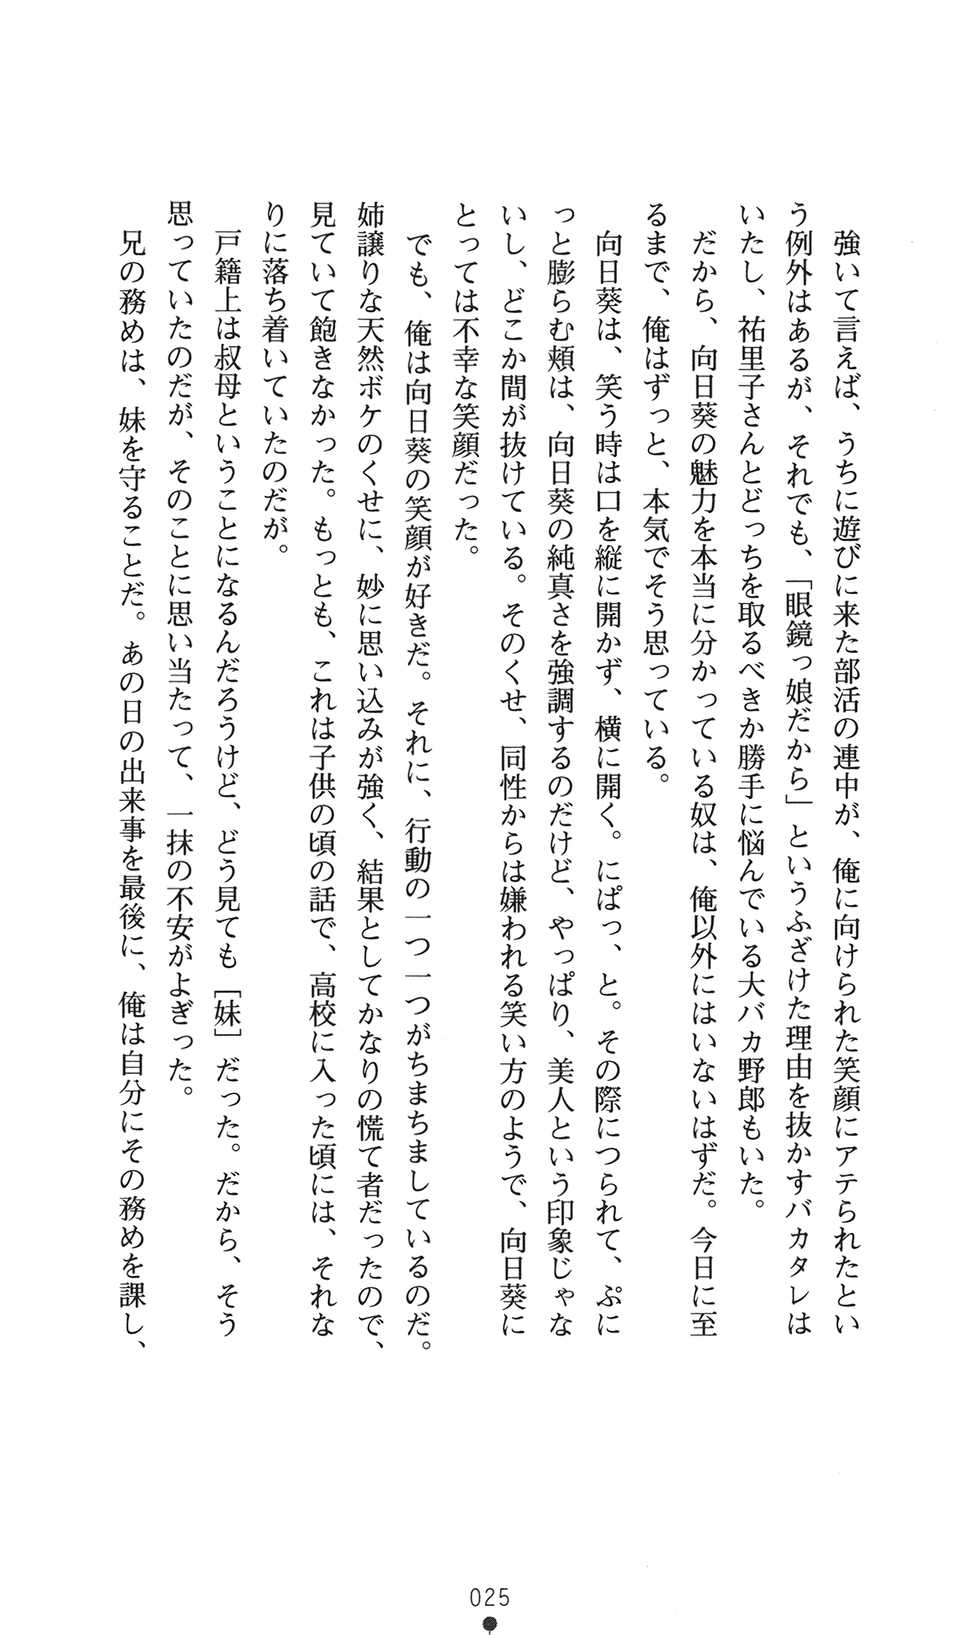 強いて言えば、うちに遊びに来た部活の連中が、俺に向けられた笑顔にアテられたとい
う例外はあるが、それでも、「眼鏡っ娘だから」というふざけた理由を抜かすバカタレは
いたし、祐里子さんとどっちを取るべきか勝手に悩んでいる大バカ野郎もいた。
だから、向日葵の魅力を本当に分かっている奴は、俺以外にはいないはずだ。今日に至
るまで、俺はずっと、本気でそう思っている。
向日葵は、笑う時は口を縦に開かず、横に開く。にぱっ、と。その際につられて、ぷに
っと膨らむ頬は、向日葵の純真さを強調するのだけど、やっぱり、美人という印象じゃな
いし、どこか間が抜けている。そのくせ、同性からは嫌われる笑い方のようで、向日葵に
とっては不幸な笑顔だった。
でも、俺は向日葵の笑顔が好きだ。それに、行動の一つ一つがちまちましているのだ。
姉譲りな天然ボケのくせに、妙に思い込みが強く、結果としてかなりの慌て者だったので、
見ていて飽きなかった。もっとも、これは子供の頃の話で、高校に入った頃には、それな
りに落ち着いていたのだが。
戸籍上は叔母ということになるんだろうけど、どう見ても［妹］だった。だから、そう
思っていたのだが、そのことに思い当たって、一抹の不安がよぎった。
兄の務めは、妹を守ることだ。あの日の出来事を最後に、俺は自分にその務めを課し、
025